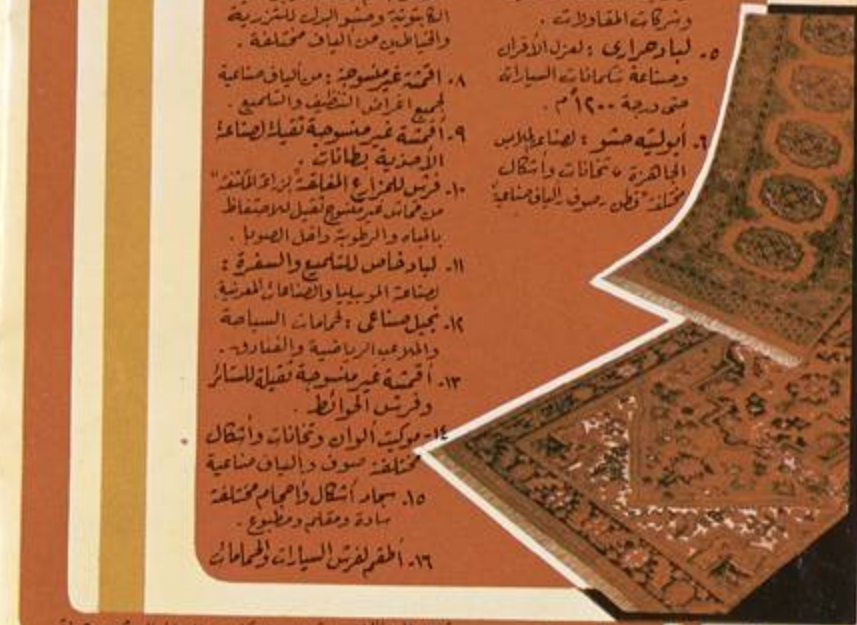 وشركات المقاولات .
٥. لباد حرارى : لعزل الأفران
وصناعة شكمانات السيارات
حتى درجة ١٢٠٠°م .
٦. أبوليته حشو : لصناعة الملابس
الجاهزة تخانات وأشكال
مختلفة "قطن - صوف - ألياف صناعية"
الكابتونية وحشو البدل للترزية
والخياطين من ألياف مختلفة .
٨. أقمشة غير منسوجة : من ألياف صناعية
لجميع أغراض التنظيف والتلميع .
٩. أقمشة غير منسوجة ثقيلة لصناعة
الأحذية بطانات .
١٠. فرش للمزارع المغلقة "لزراعة المكثفة"
من قماش غير منسوج ثقيل للاحتفاظ
بالمياه والرطوبة داخل الصوبا .
١١. لباد خاص للتلميع والسفرة :
لصناعة الموبيليا والصناعات المعدنية
١٢. نجيل صناعى : لحمامات السباحة
والملاعب الرياضية والفنادق .
١٣. أقمشة غير منسوجة ثقيلة للستائر
وفرش الحوائط .
١٤- موكيت ألوان وتخانات وأشكال
مختلفة صوف وألياف صناعية
١٥. سجاد أشكال وأحجام مختلفة
سادة ومقلم ومطبوع .
١٦. أطقم لفرش السيارات والحمامات